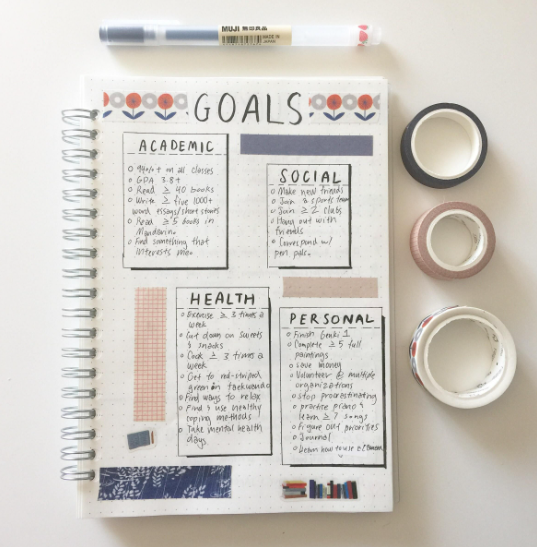 MUJI 無印良品
MADE IN
JAPAN
GOALS
ACADEMIC
94%+ on all classes
GPA 3.8+
Read ≥ 40 books
Write ≥ five 1000+
word essays/short stories
Read ≥ 5 books in
Mandarin.
Find something that
interests me.
SOCIAL
Make new friends
Join a sports team
Join ≥ 2 clubs
Hang out with
friends
Correspond w/
pen pals.
HEALTH
Exercise ≥ 3 times a
week
Cut down on sweets
& snacks
Cook ≥ 3 times a
week
Get to red-striped
green in taekwondo
Find ways to relax
Find & use healthy
coping methods
Take mental health
days
PERSONAL
Finish Genki 1
Complete ≥ 5 full
paintings
Save money
Volunteer @ multiple
organizations
stop procrastinating
practise piano &
learn ≥ 7 songs
Figure out priorities
Journal
Learn how to use